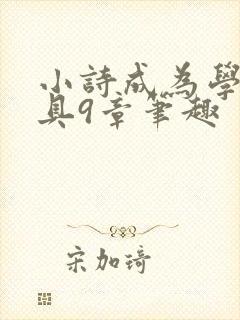 小詩成為學
具9章筆趣
宋加琦